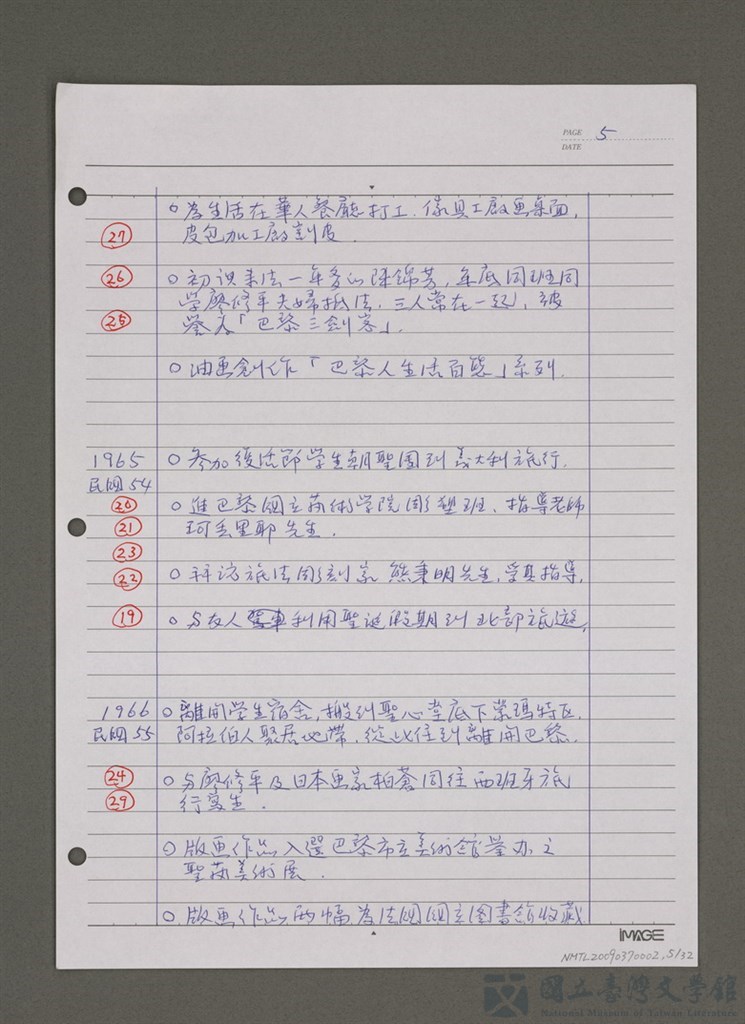 PAGE 5
DATE
○ 為生活在華人餐廳打工、傢具工廠画桌面,
27 皮包加工廠剖皮.
26 ○ 初識來法一年多的陳錦芳, 年底同班同
學廖修平夫婦抵法, 三人常在一起, 被
25 譽為「巴黎三劍客」.
○ 油画創作「巴黎人生活百態」系列.
1965 ○ 參加復活節學生朝聖團到義大利旅行.
民國54
20 ○ 進巴黎國立藝術學院彫塑班、指導老師
21 珂丢里耶先生.
23
22 ○ 拜访旅法彫刻家 熊秉明先生, 受其指導.
19 ○ 与友人 利用聖誕假期到北部旅遊,
1966 ○ 離開學生宿舍, 搬到聖心堂底下蒙瑪特区.
民國55 阿拉伯人聚居地帶, 從此住到離開巴黎.
24 ○ 与廖修平及日本画家柏蒼同往西班牙旅
29 行寫生.
○ 版画作品入選巴黎市立美術館举办之
聖藝美術展.
○ 版画作品兩幅為法國國立图書館收藏
IMAGE
NMTL20090370002, 5/32
國立臺灣文學館
National Museum of Taiwan Literature